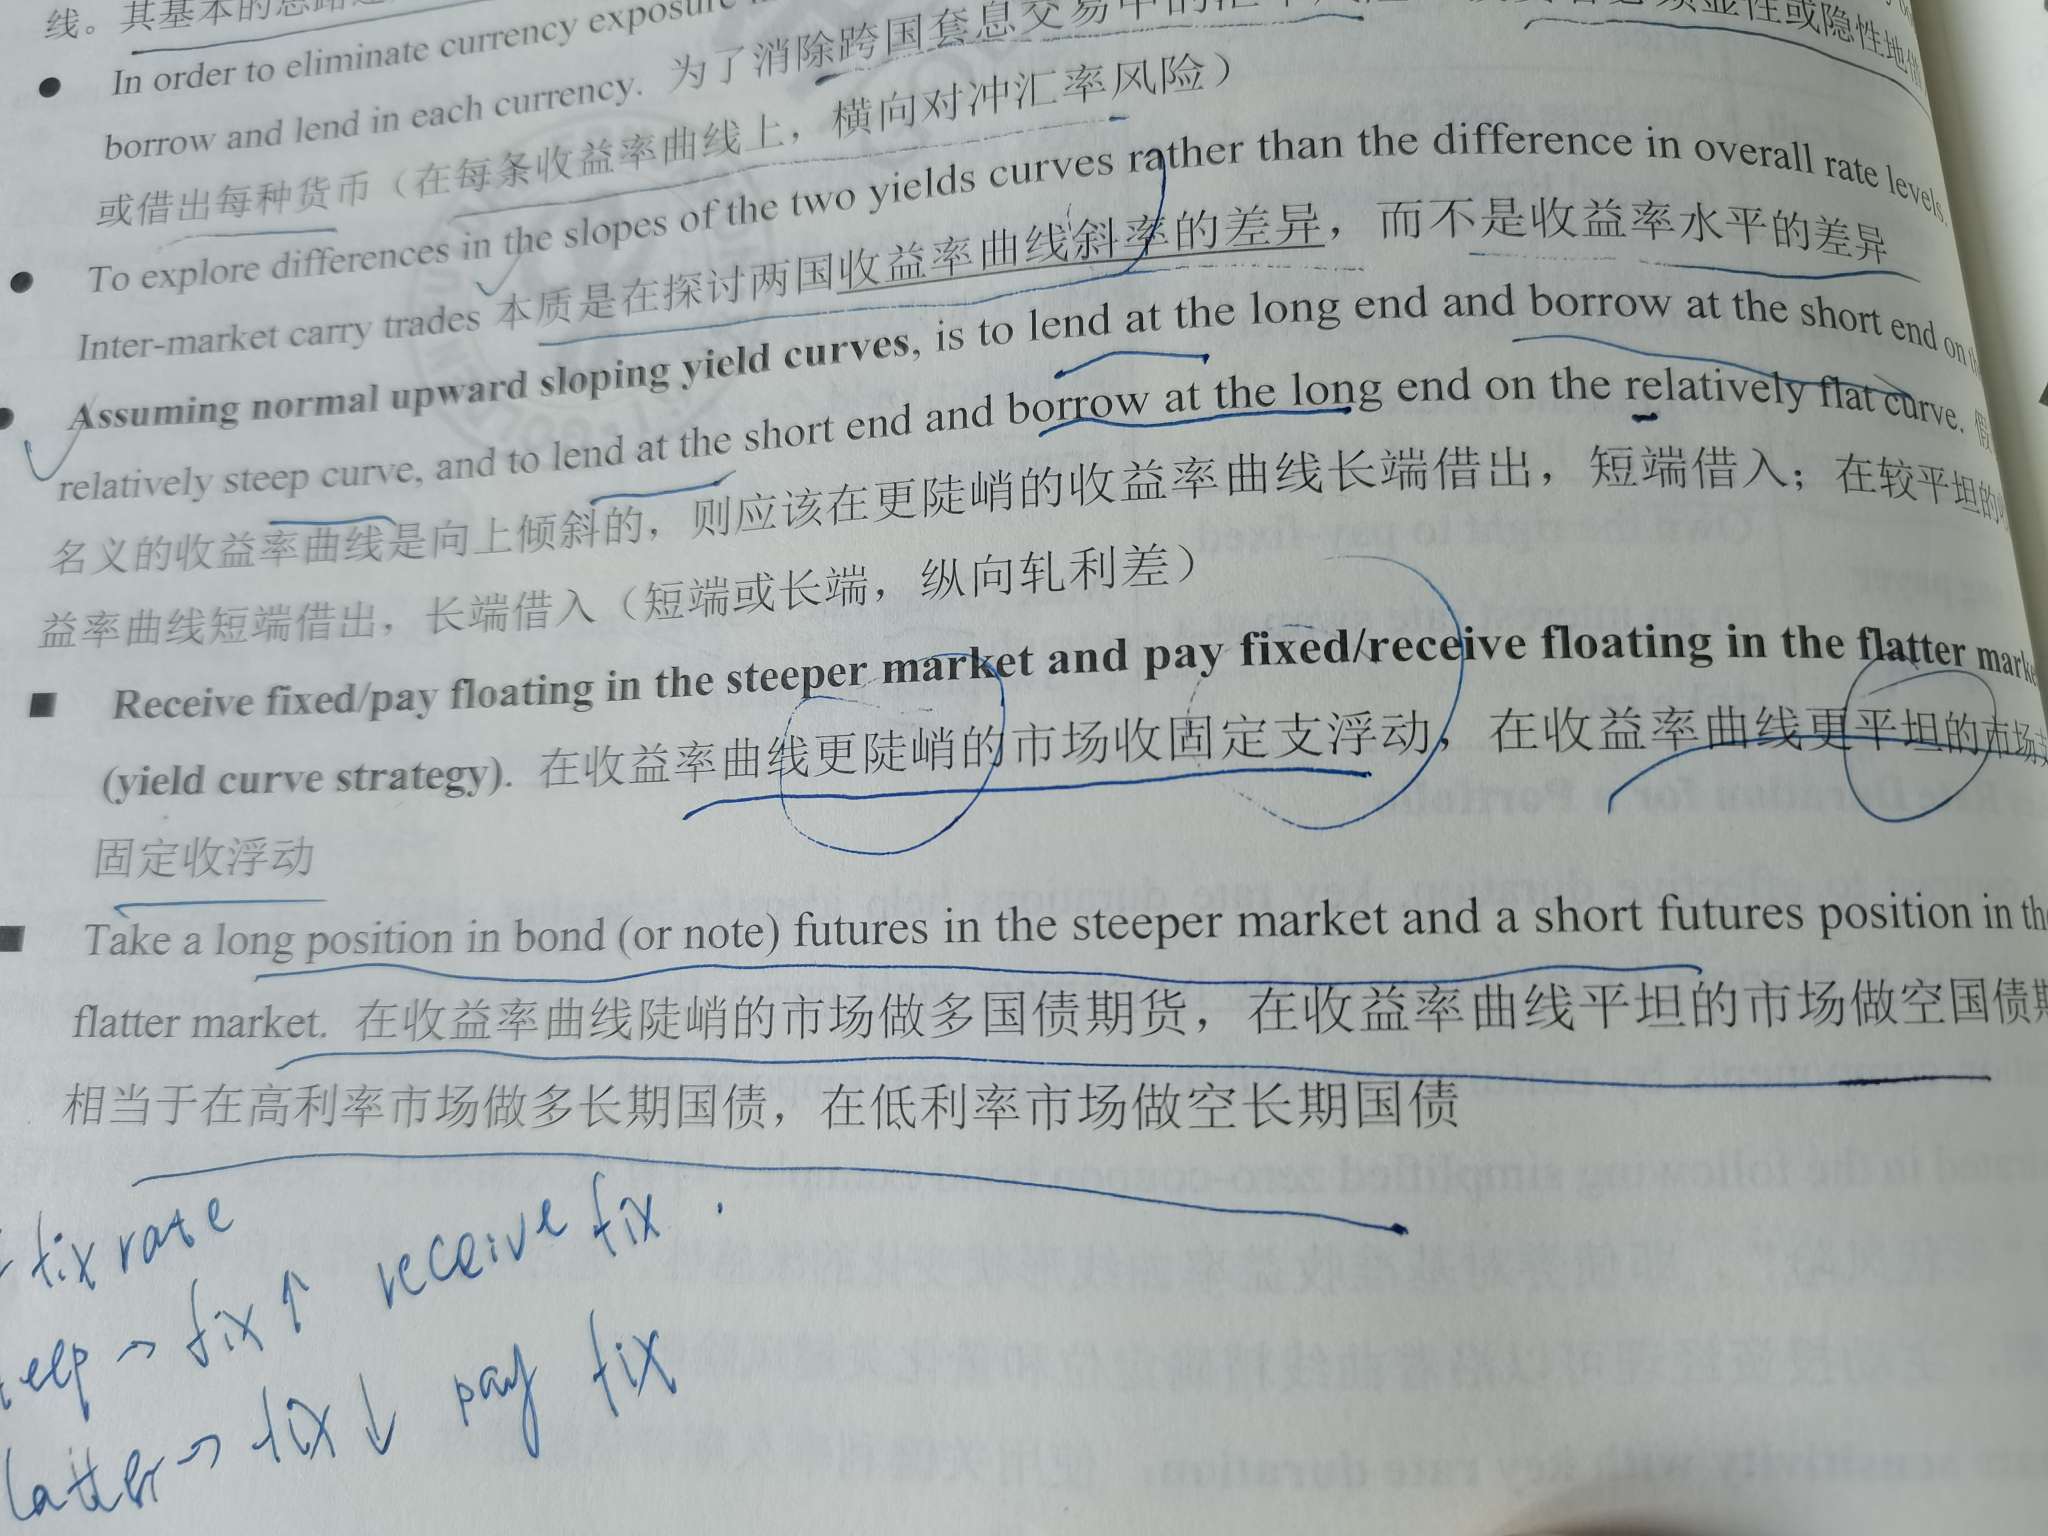 线。其基本的思路是
In order to eliminate currency exposure
borrow and lend in each currency. 为了消除跨国套息交易中的汇率风险 显性或隐性地借
或借出每种货币（在每条收益率曲线上，横向对冲汇率风险）
To explore differences in the slopes of the two yields curves rather than the difference in overall rate levels.
Inter-market carry trades 本质是在探讨两国收益率曲线斜率的差异，而不是收益率水平的差异
Assuming normal upward sloping yield curves, is to lend at the long end and borrow at the short end on
relatively steep curve, and to lend at the short end and borrow at the long end on the relatively flat curve.
名义的收益率曲线是向上倾斜的，则应该在更陡峭的收益率曲线长端借出，短端借入；在较平坦的
益率曲线短端借出，长端借入（短端或长端，纵向轧利差）
Receive fixed/pay floating in the steeper market and pay fixed/receive floating in the flatter market
(yield curve strategy). 在收益率曲线更陡峭的市场收固定支浮动，在收益率曲线更平坦的市场支
固定收浮动
Take a long position in bond (or note) futures in the steeper market and a short futures position in the
flatter market. 在收益率曲线陡峭的市场做多国债期货，在收益率曲线平坦的市场做空国债期
相当于在高利率市场做多长期国债，在低利率市场做空长期国债
fix rate
eep → fix ↑ receive fix.
latter → fix ↓ pay fix